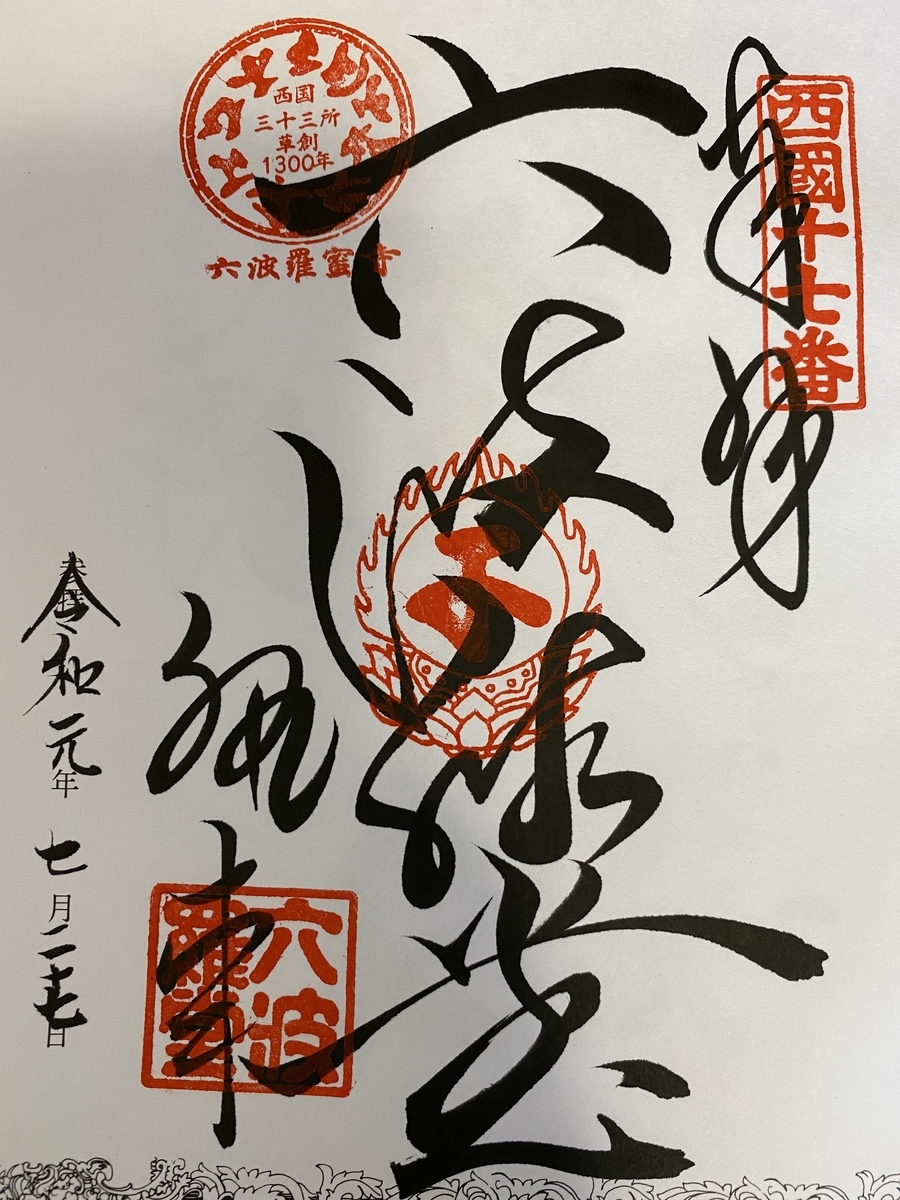 奉拝
西國十七番
六波羅堂
西国
三十三所
草創
1300年
六波羅蜜寺
六波
羅蜜
令和元年七月二十七日